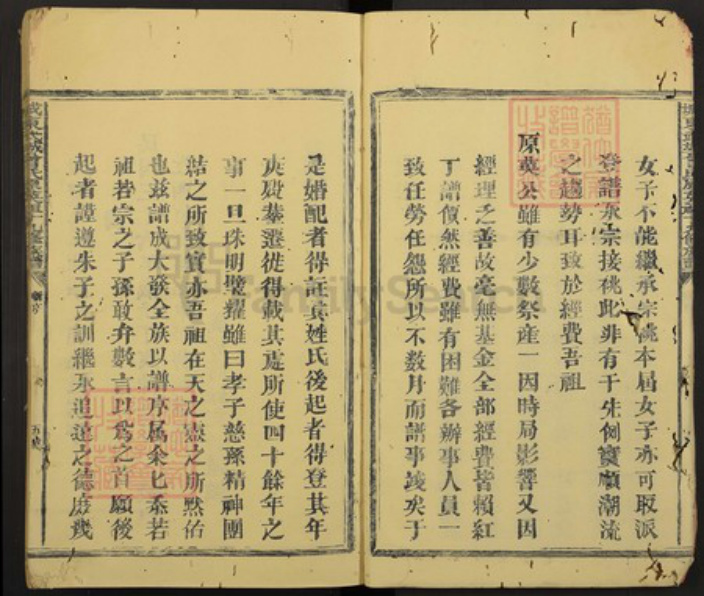 女子不能繼承宗祧本屆女子亦可取派
登譜承宗接祧此非有干先例實順潮流
之趨勢耳致於經費吾祖
原英公雖有少數祭産一因時局影響又因
經理之善故毫無基金全部經費皆賴紅
丁譜價然經費雖有困難各辦事人員一
致任勞任怨所以不数月而譜事竣矣于
是婚配者得証其姓氏後起者得登其年
庚殁塟遷徙得載其處所使四十餘年之
事一旦珠明璧耀雖曰孝子慈孫精神團
結之所致實亦吾祖在天之靈之所黙佑
也兹譜成大發全族以譜序属余七忝若
祖若宗之子孫敢弁數言以爲之首願後
起者謹遵朱子之訓繼承追遠之德庶幾
FamilySearch